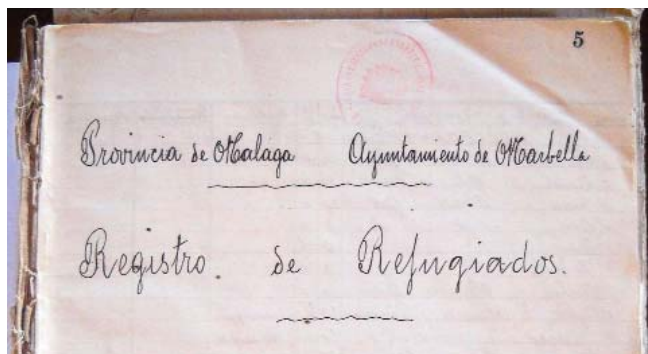 5
Provincia de Malaga Ayuntamiento de Marbella
Registro. de Refugiados.